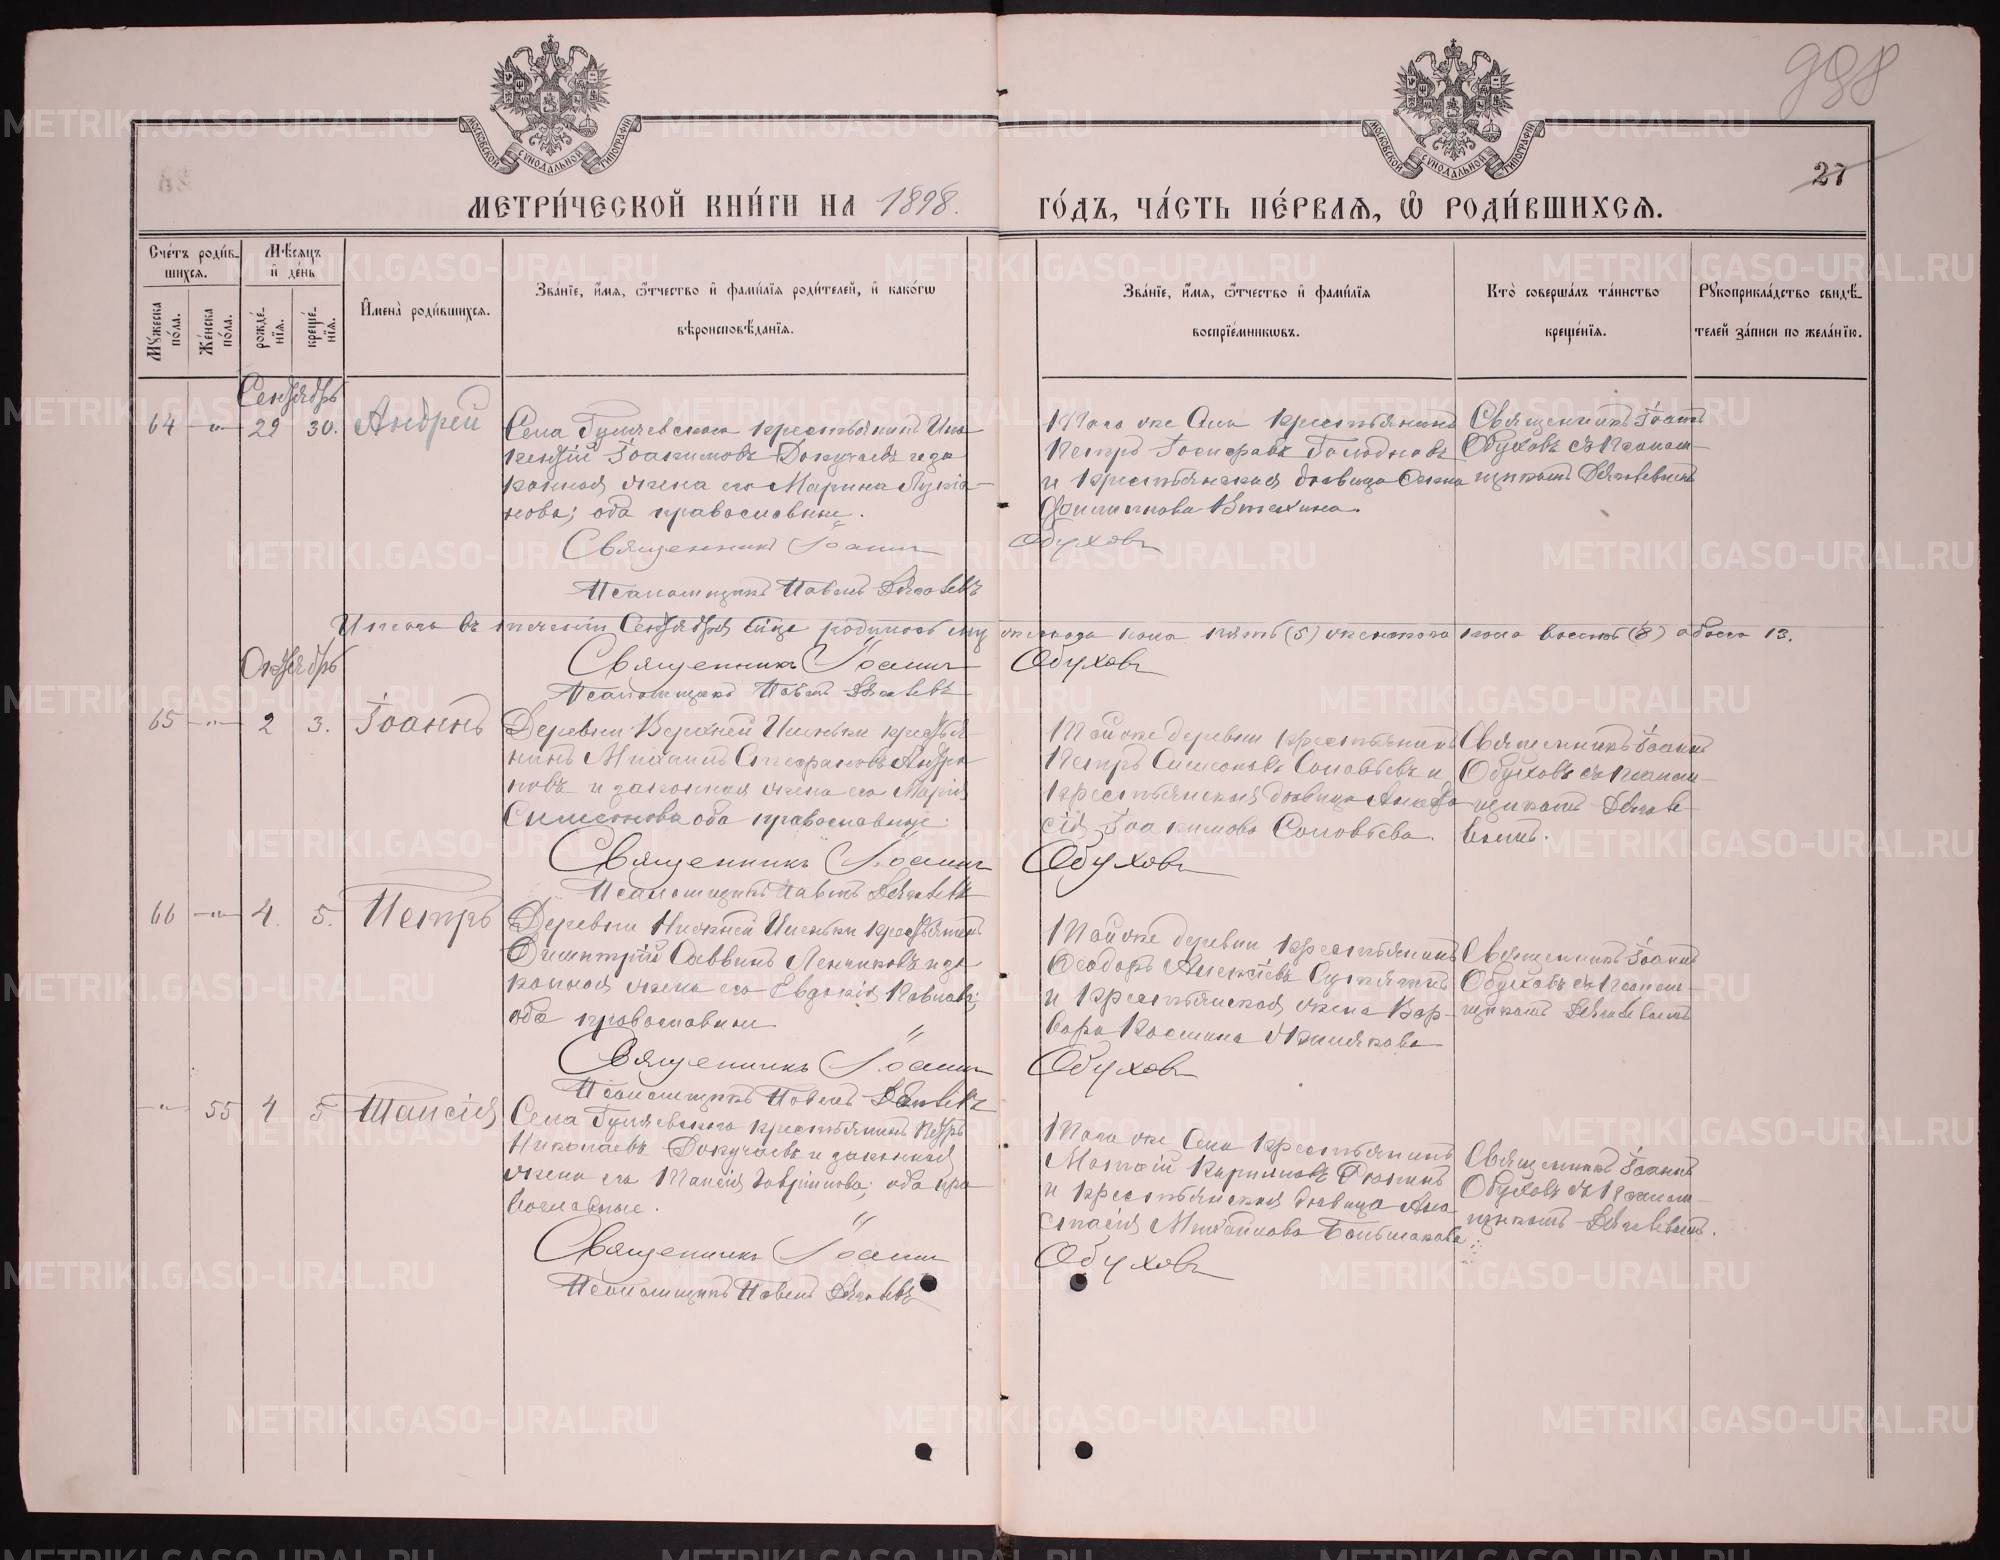 998
27
МОСКОВСКОЙ СѴНОДАЛЬНОЙ ТИПОГРАФІИ
МОСКОВСКОЙ СѴНОДАЛЬНОЙ ТИПОГРАФІИ
МЕТРИ́ЧЕСКОЙ КНИ́ГИ НА 1898.
ГО́ДЪ, ЧА́СТЬ ПЕ́РВАЯ, Ѽ РОДИ́ВШИХСЯ.
Сче́тъ роди́в-
шихся.
Мѣ́сяцъ
и҆ де́нь
Му́жеска
по́ла.
Же́нска
по́ла.
рожде́-
нїя.
креще́-
нїя.
И҆мена̀ роди́вшихся.
Зва́нїе, и҆́мя, ѻ҆́тчество и҆ фами́лїя роди́телей, и҆ како́гѡ
вѣроисповѣ́данїя.
Зва́нїе, и҆́мя, ѻ҆́тчество и҆ фами́лїя
воспрїе́мникѡвъ.
Кто̀ соверша́лъ та́инство
креще́нїя.
Рꙋкоприкла́дство свидѣ́-
телей за́писи по жела́нїю.
Сентябрь
64 -"- 29 30. Андрей
Села Гуляевскаго крестьянинъ Ино-
кентій Іоакимовъ Докучаевъ и за
конная жена его Марина Лукiа-
нова; оба православные.
Священникъ Іоаннъ
Обуховъ
Псаломщикъ Павелъ
Того же Села крестьянинъ
Петръ Голодновъ
и крестьянская дѣвица
Филиппова
Священникъ Іоаннъ
Обуховъ съ псалом-
щикомъ
Итого въ теченіи Сентября мца родилось муж
жескаго пола пять (5) женскаго пола восемь (8) а всего 13.
Священникъ Іоаннъ
Обуховъ
Псаломщикъ Павелъ
Октябрь
65 -"- 2 3. Іоаннъ
Деревни Верхней крестья-
нинъ Михаилъ Стефановъ
и законная жена его Марія
Симеонова оба православные.
Священникъ Іоаннъ
Обуховъ
Псаломщикъ Павелъ
Той же деревни крестьянинъ
Петръ Симеоновъ Соловьевъ и
крестьянская дѣвица Анаста
сія Іоакимова Соловьева.
Священникъ Іоаннъ
Обуховъ съ псалом-
щикомъ
66 -"- 4. 5. Петръ
Деревни Нижней крестьянинъ
Димитрій Саввинъ и за
конная жена его Евдокія Павлова;
оба православные
Священникъ Іоаннъ
Обуховъ
Псаломщикъ Павелъ
Той же деревни крестьянинъ
Ѳеодоръ Алексіевъ
и крестьянская жена Вар-
вара Космина
Священникъ Іоаннъ
Обуховъ съ псалом-
щикомъ
-"- 55 4 5 Таисія
Села Гуляевскаго крестьянинъ Петръ
Николаевъ Докучаевъ и законная
жена его Таисія Гавріилова; оба пра
вославные.
Священникъ Іоаннъ
Обуховъ
Псаломщикъ Павелъ
Того же Села крестьянинъ
и крестьянская дѣвица Ана
стасія Михайлова Большакова.
Священникъ Іоаннъ
Обуховъ съ псалом-
щикомъ
METRIKI.GASO-URAL.RU